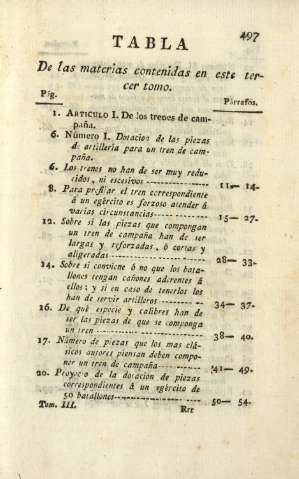 497
TABLA
De las materias contenidas en este ter-
cer tomo.
Pág. Párrafos.
1. ARTICULO I. De los trenes de cam-
paña.
6. Número I. Dotacion de las piezas
de artillería para un tren de cam-
paña.
6. Los trenes no han de ser muy redu-
cidos, ni escesivos 11— 14.
8. Para prefijar el tren correspondiente
á un egército es forzoso atender á
varias circunstancias 15— 27.
12. Sobre si las piezas que compongan
un tren de campaña han de ser
largas y reforzadas, ó cortas y
aligeradas 28— 33.
14. Sobre si conviene ó no que los bata-
llones tengan cañones aderentes á
ellos; y si en caso de tenerlos los
han de servir artilleros 34— 37.
16. De qué especie y calibres han de
ser las piezas de que se componga
un tren 38— 40.
17. Número de piezas que los mas clá-
sicos autores piensan deben compo-
ner un tren de campaña 41— 49.
20. Proyecto de la dotacion de piezas
correspondientes á un egército de
50 batallones 50— 54.
Tom. III. Rrr